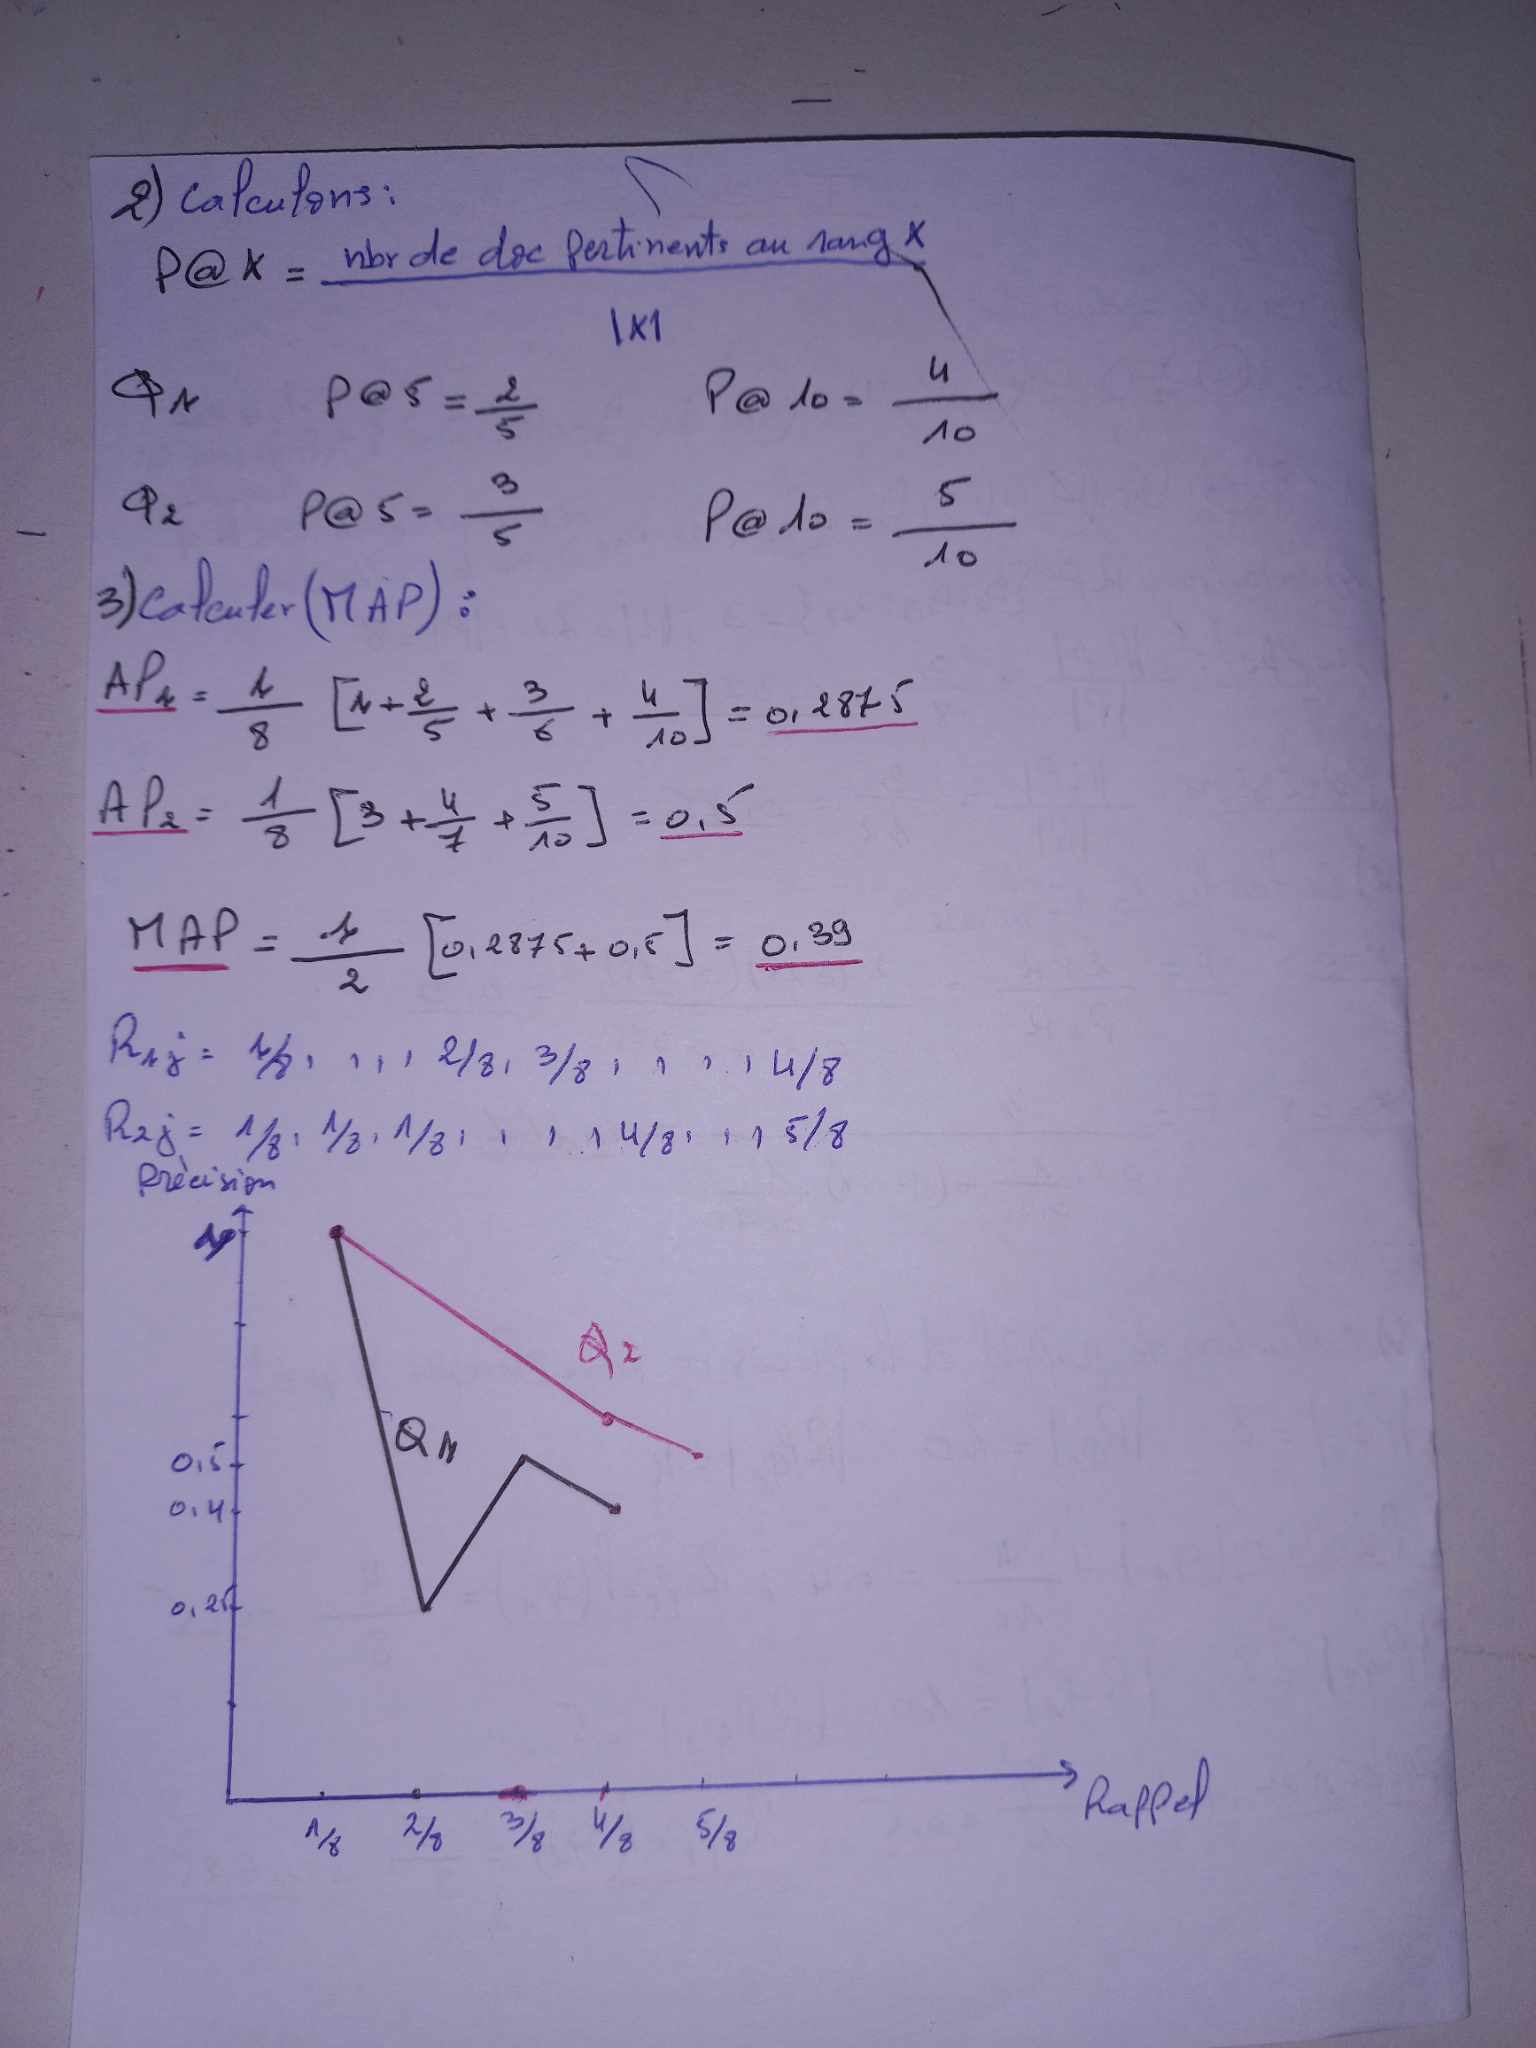 2) Calculons:
P@X = nbr de doc pertinents au rang X
|X|
Q1 P@5 = 2/5 P@10 = 4/10
Q2 P@5 = 3/5 P@10 = 5/10
3) Calculer (MAP) :
AP1 = 1/8 [1 + 2/5 + 3/6 + 4/10] = 0,2875
AP2 = 1/8 [3 + 4/7 + 5/10] = 0,5
MAP = 1/2 [0,2875 + 0,5] = 0,39
R1j = 1/8, , , , 2/8, 3/8, , , , 4/8
R2j = 1/8, 1/8, 1/8, , , , 4/8, , , 5/8
Précision
Q2
Q1
0,5
0,4
0,25
1/8 2/8 3/8 4/8 5/8
Rappel